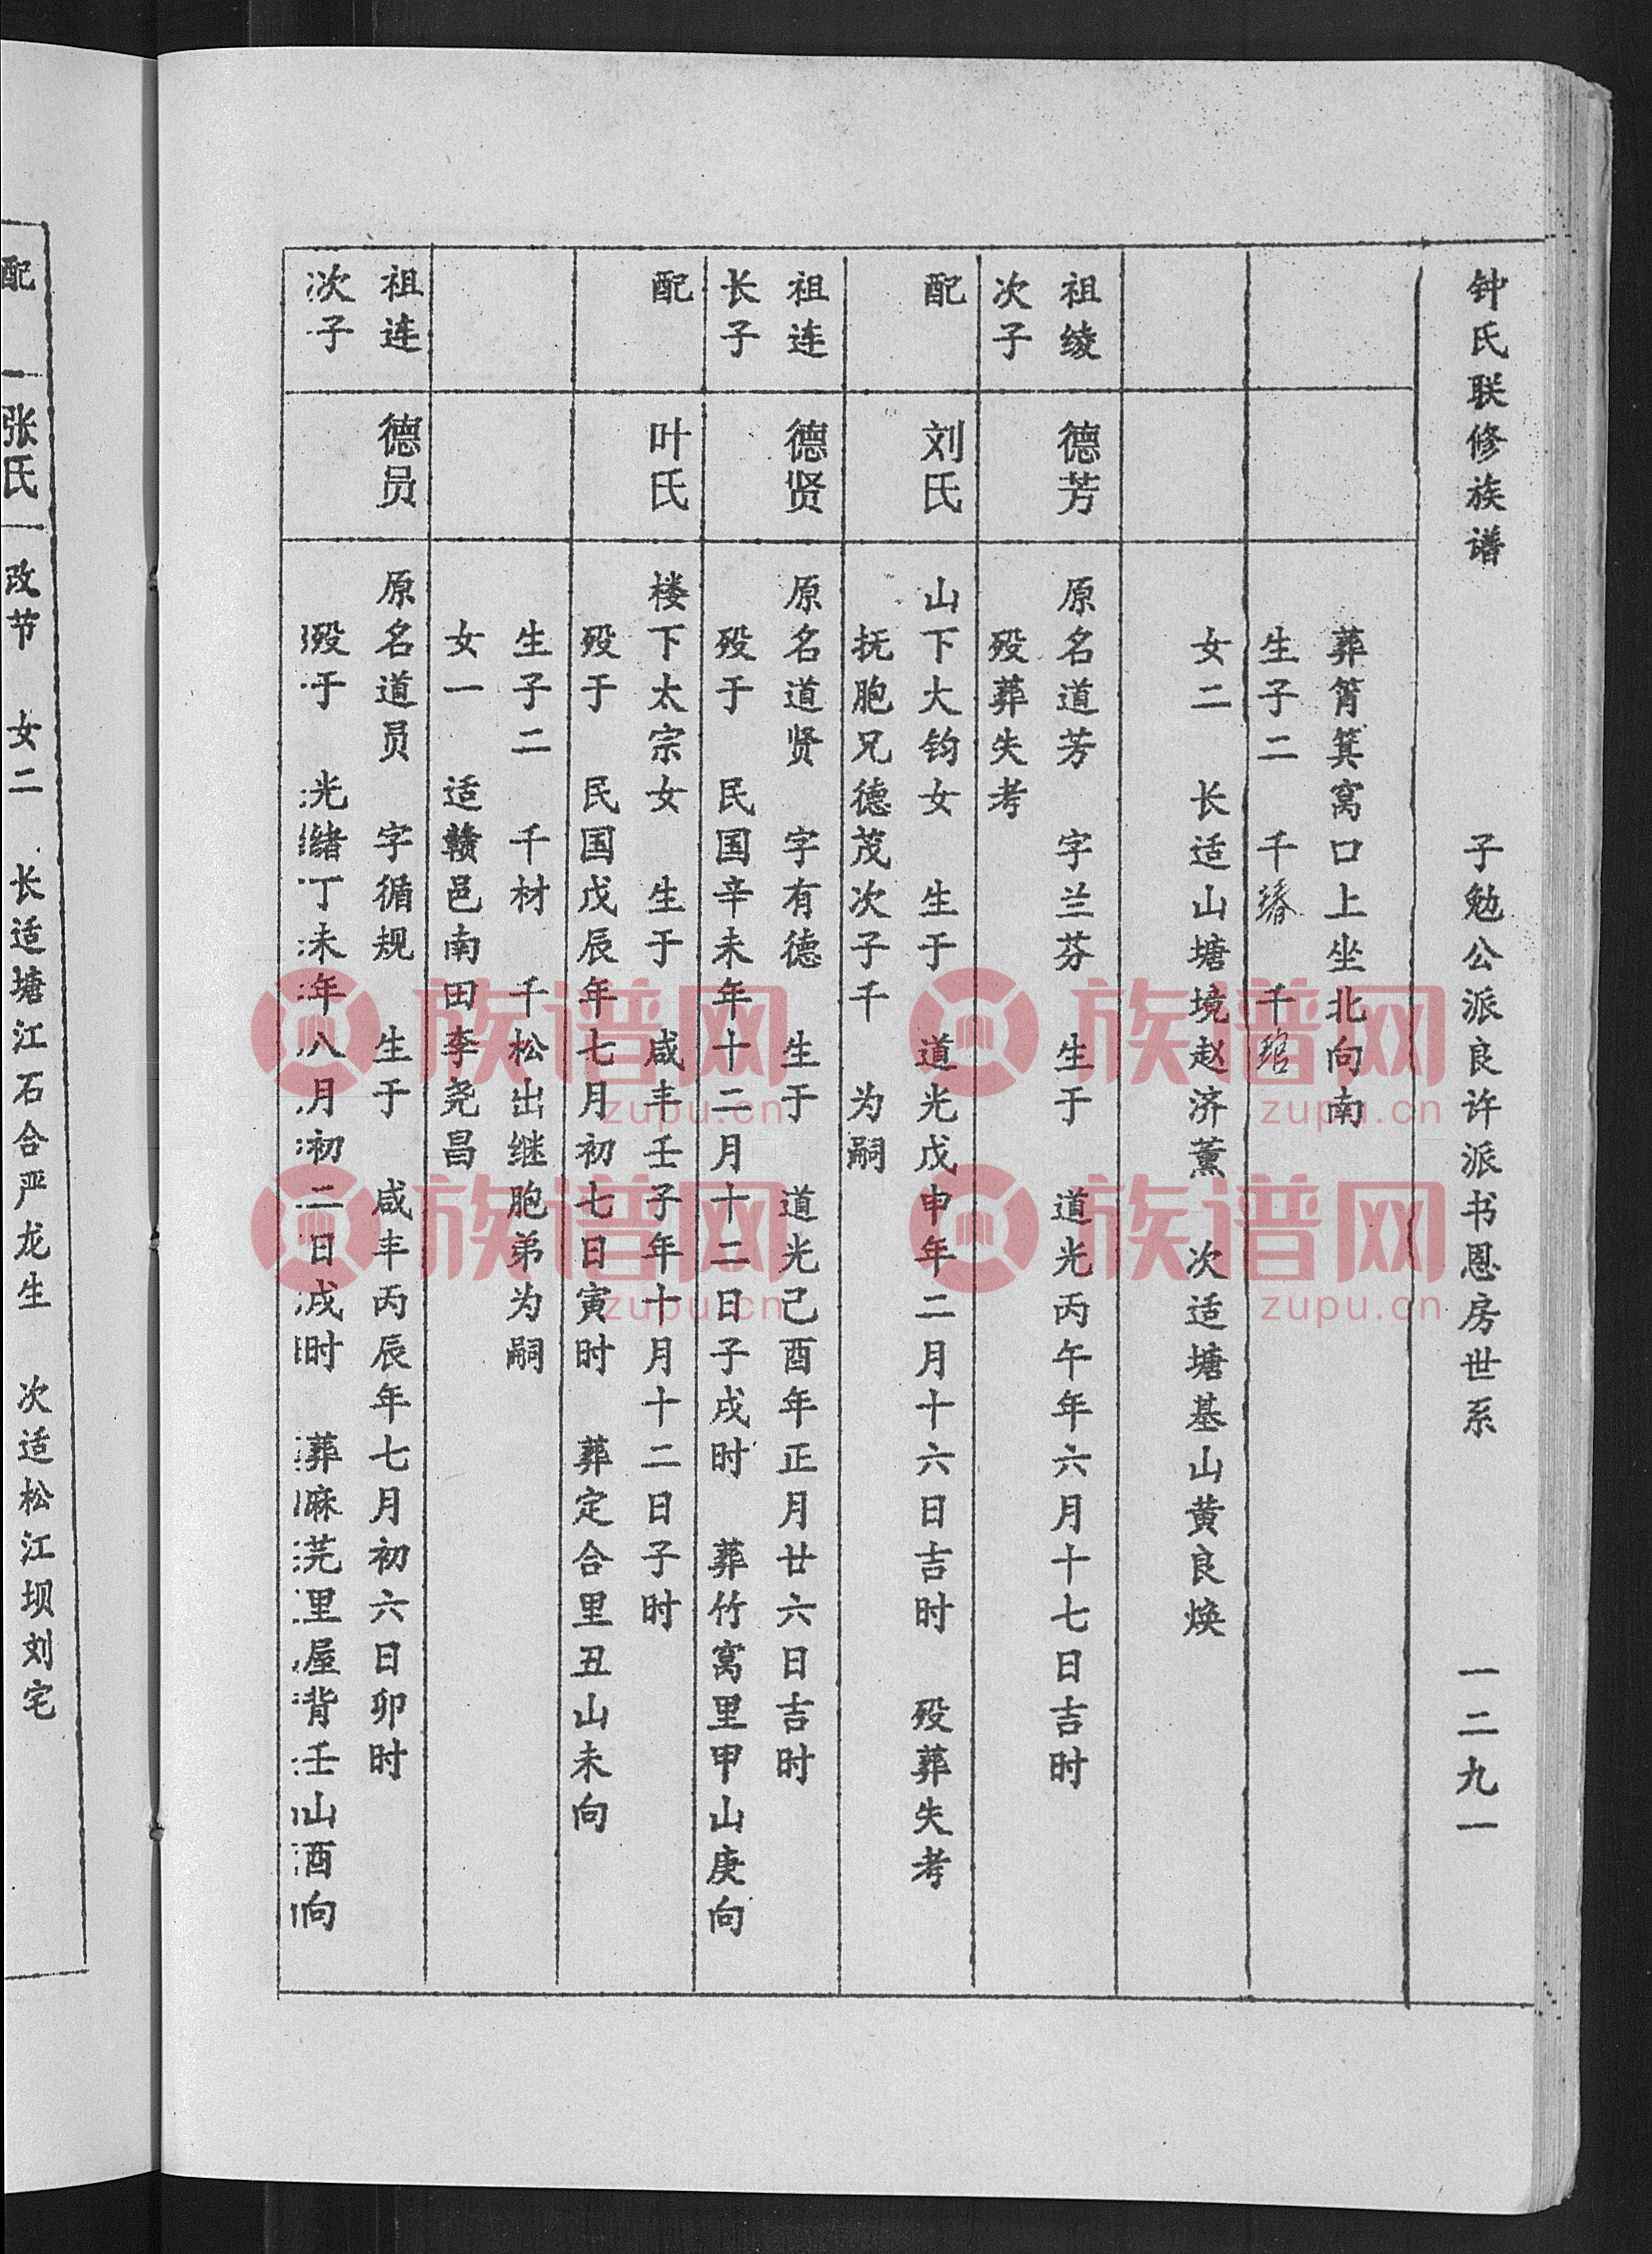 钟氏联修族谱 子勉公派良许派书恩房世系 一二九一
葬筲箕窝口上坐北向南
生子二 千 千
女二 长适山塘境赵济薰 次适塘基山黄良焕
祖绫 德芳 原名道芳 字兰芬 生于 道光丙午年六月十七日吉时
次子 殁葬失考
配 刘氏 山下大钧女 生于 道光戊申年二月十六日吉时 殁葬失考
抚胞兄德茂次子千 为嗣
祖连 德贤 原名道贤 字有德 生于 道光己酉年正月廿六日吉时
长子 殁于 民国辛未年十二月十二日子戌时 葬竹窝里甲山庚向
配 叶氏 楼下太宗女 生于 咸丰壬子年十月十二日子时
殁于 民国戊辰年七月初七日寅时 葬定合里丑山未向
生子二 千材 千松出继胞弟为嗣
女一 适赣邑南田李尧昌
祖连 德员 原名道员 字循规 生于 咸丰丙辰年七月初六日卯时
次子 殁于 光绪丁未年八月初二日戌时 葬麻芫里屋背壬山酉向
配 张氏 改节 女二 长适塘江石合严龙生 次适松江坝刘宅
族谱网
zupu.cn
族谱网
zupu.cn
族谱网
zupu.cn
族谱网
zupu.cn